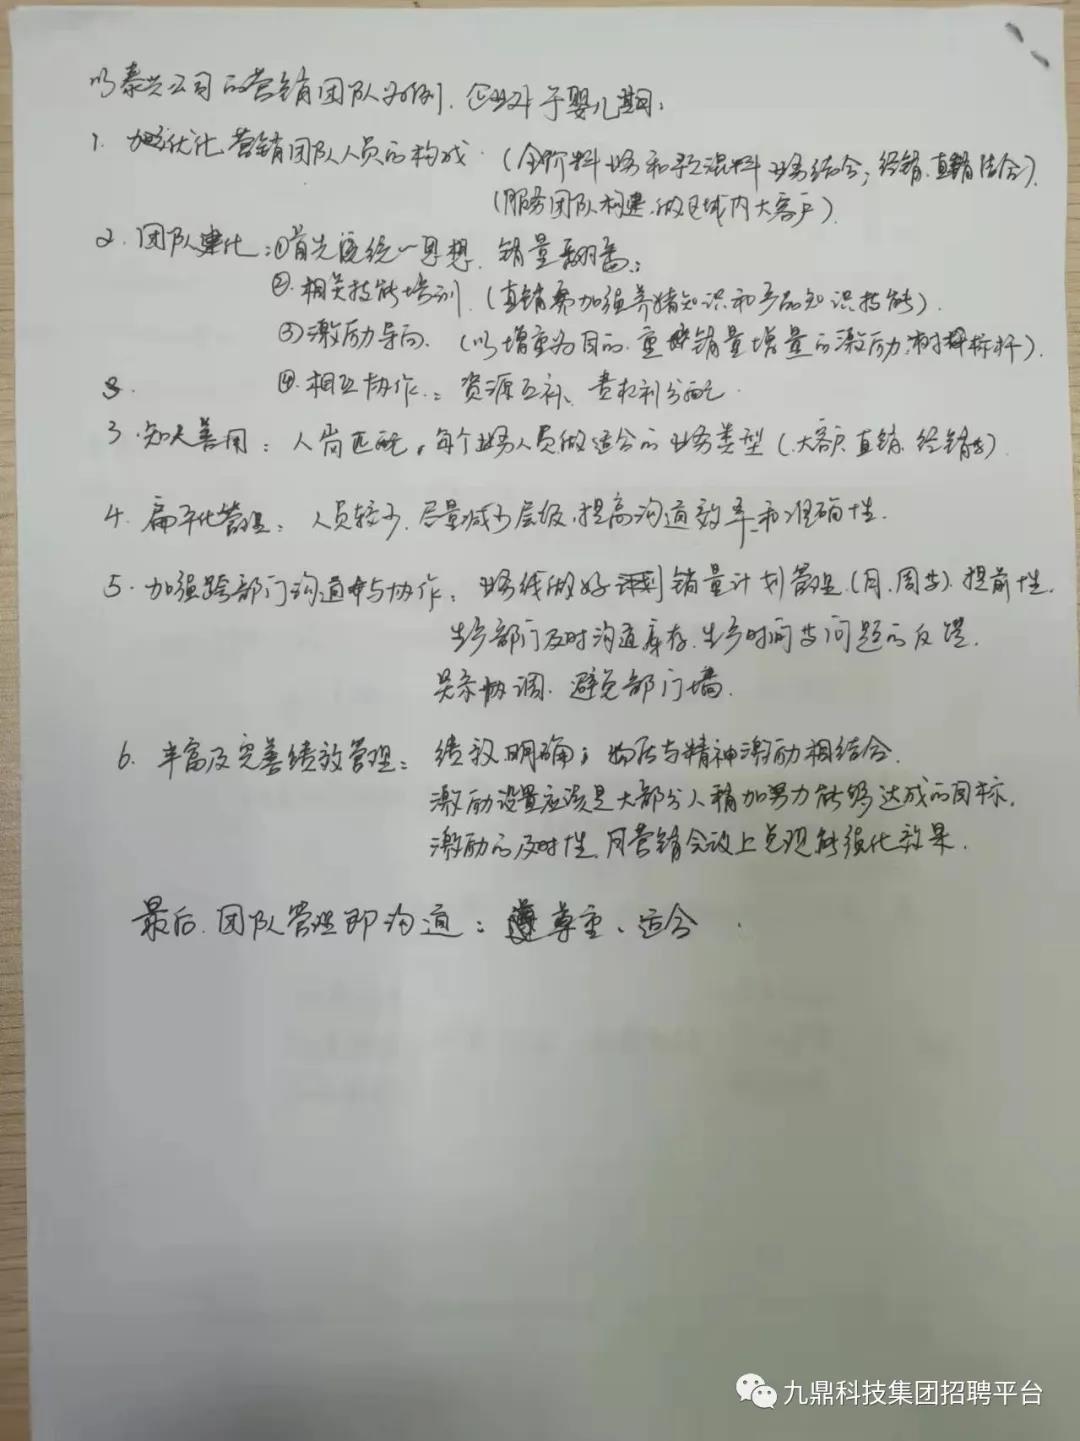 以泰兴公司的营销团队为例,企业处于婴儿期:
1. 优化营销团队人员的构成.(全价料业务和预混料业务结合;经销、直销结合).
(服务团队构建.做区域内大客户).
2. 团队建化:①首先统一思想.销量翻番;
②.相关技能培训.(直销要加强养猪知识和产品知识技能).
③激励导向.(以增重为目的.重销量增量的激励;树标杆).
3. ④.相互协作.:资源互补、责权利分配.
3.知人善用:人岗匹配,每个业务人员做适合的业务类型(大客户.直销.经销等)
4. 扁平化管理:人员较少.尽量减少层级.提高沟通效率和准确性.
5.加强跨部门沟通与协作:业务线做好销量计划管理.(月、周等).提前性.
生产部门及时沟通库存.生产时间与问题的反馈.
关系协调.避免部门墙.
6. 丰富及完善绩效管理:绩效明确;物质与精神激励相结合.
激励设置应该是大部分人稍加努力能够达成的目标.
激励的及时性.月营销会议上兑现能强化效果.
最后.团队管理即沟通:尊重、适合.
九鼎科技集团招聘平台